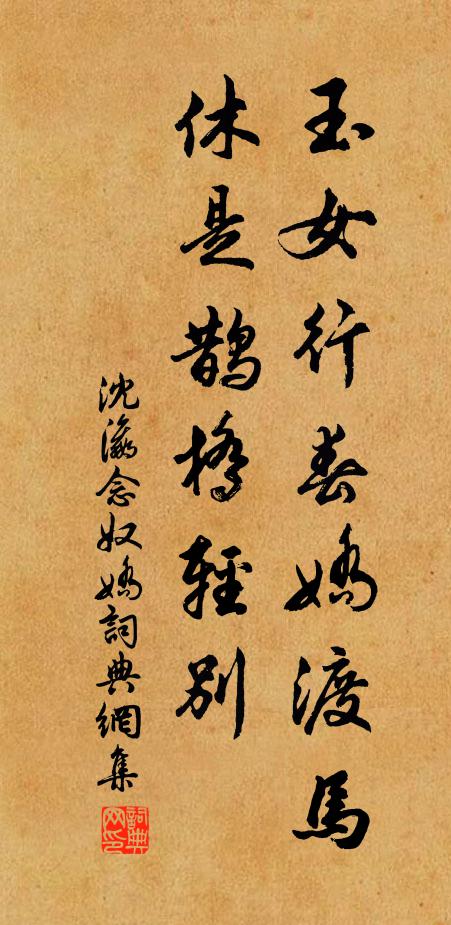 玉女行春嬌渡馬
休是鵲橋輕別
沈瀛念奴嬌詞典網集
詞典网印